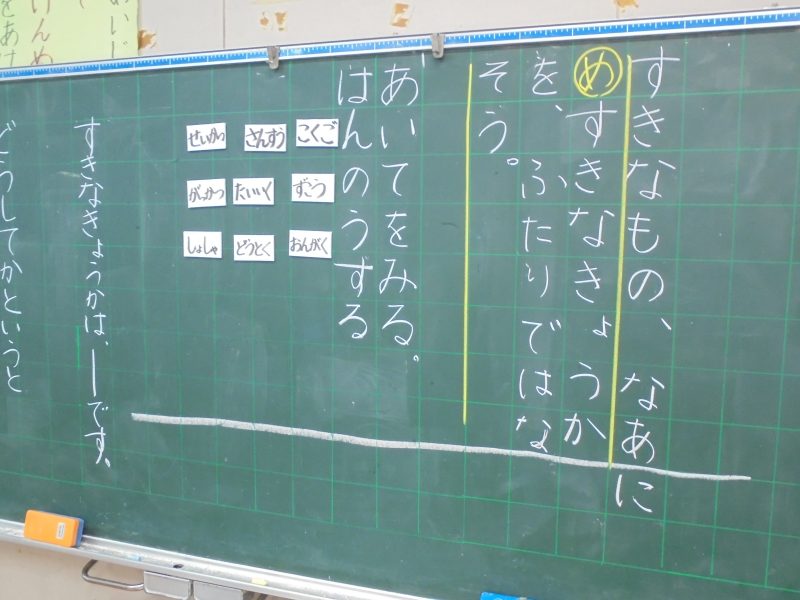 すきなもの、なあに
めすきなきょうか
を、ふたりではな
そう。
あいてをみる。
はんのうする
こくご
さんすう
せいかつ
ずこう
たいいく
がっかつ
おんがく
どうとく
しょしゃ
すきなきょうかは、―です。
どうしてかというと